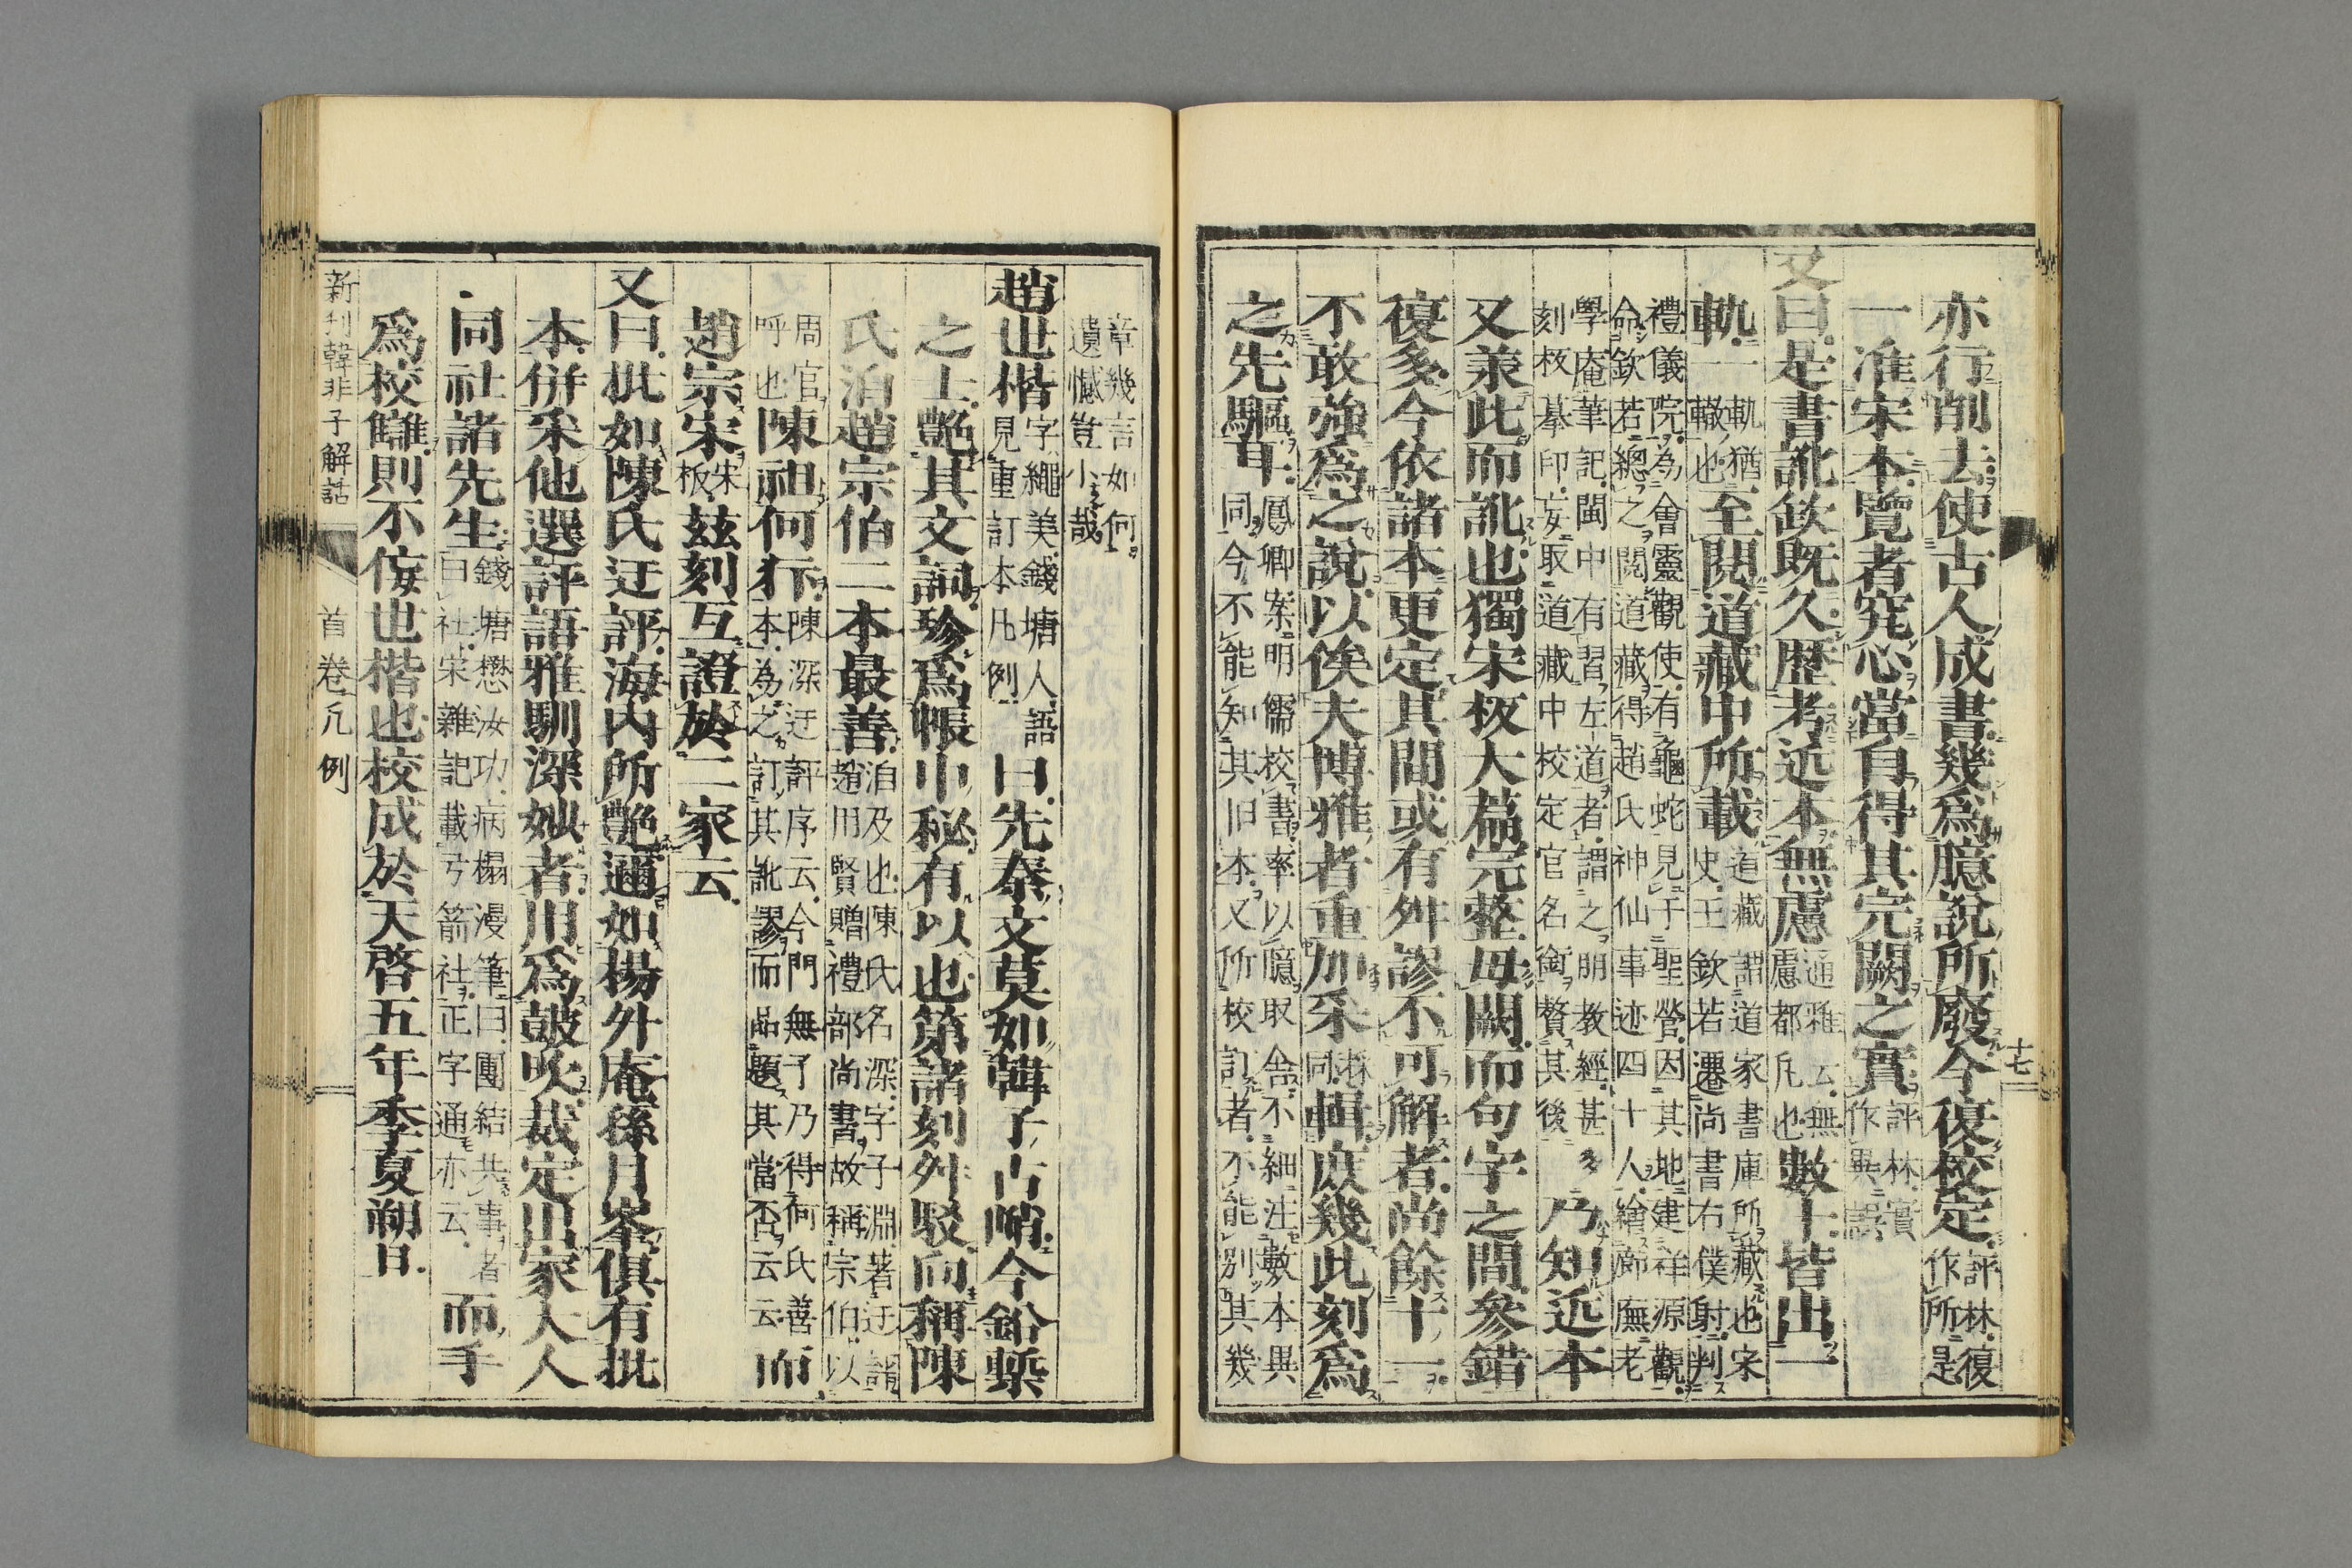 亦行削去使古人成書幾爲臆說所廢今復校定評林復作所是
一准宋本覽者究心當自得其完闕之實評林實作異誤
又曰是書訛欽既久歷考近本無慮通雅云無慮都凡也數十皆出一
軌一軌猶轍也至閱道藏中所載道藏謂道家書庫所藏也宋史王欽若遷尚書右僕射判
禮儀院爲會靈觀使有龜蛇見于聖營因其地建祥源觀命欽若總之閱道藏得趙氏神仙事迹四十人繪廊廡老
學庵筆記閩中有習左道者謂之明教經甚多刻板摹印妄取道藏中校定官名銜贅其後乃知近本
又承此而訛也獨宋板大篇完整毋闕而句字之間參錯
復多今依諸本更定其間或有舛謬不可解者尚餘十一
不敢強爲之說以俟夫博雅者重加采採同輯庶幾此刻爲
之先驅耳鳳卿案明儒校書率以臆取舍不細注數本異同今不能知其旧本又所校訂者不能別其幾
十七
章幾言如何遺憾豈小哉
趙世楷字繩美錢塘人語見重訂本凡例曰先秦文莫如韓子古哨今鉛槧
之士艷其文詞珍爲帳中秘有以也第諸刻舛駁向稱陳
氏洎趙宗伯二本最善洎及也陳氏名深字子淵著迂評趙用賢贈禮部尚書故稱宗伯以
周官呼也陳祖何犿陳深迂評序云今門無子乃得何氏善本爲之訂其訛謬而品題其當否云云而
趙宗宋宋板茲刻互證於二家云
又曰批如陳氏迂評海内所艷邇如楊外庵孫月峯俱有批
本併采他選評語雅馴深妙者用爲鼓吹裁定出家大人
同社諸先生錢塘懋汝功病榻漫筆曰團結共事者曰社宋雜記載弓箭社正字通亦云而手
爲校讎則不侫也楷也校成於天啓五年季夏朔日
新刊韓非子解詁 首卷凡例